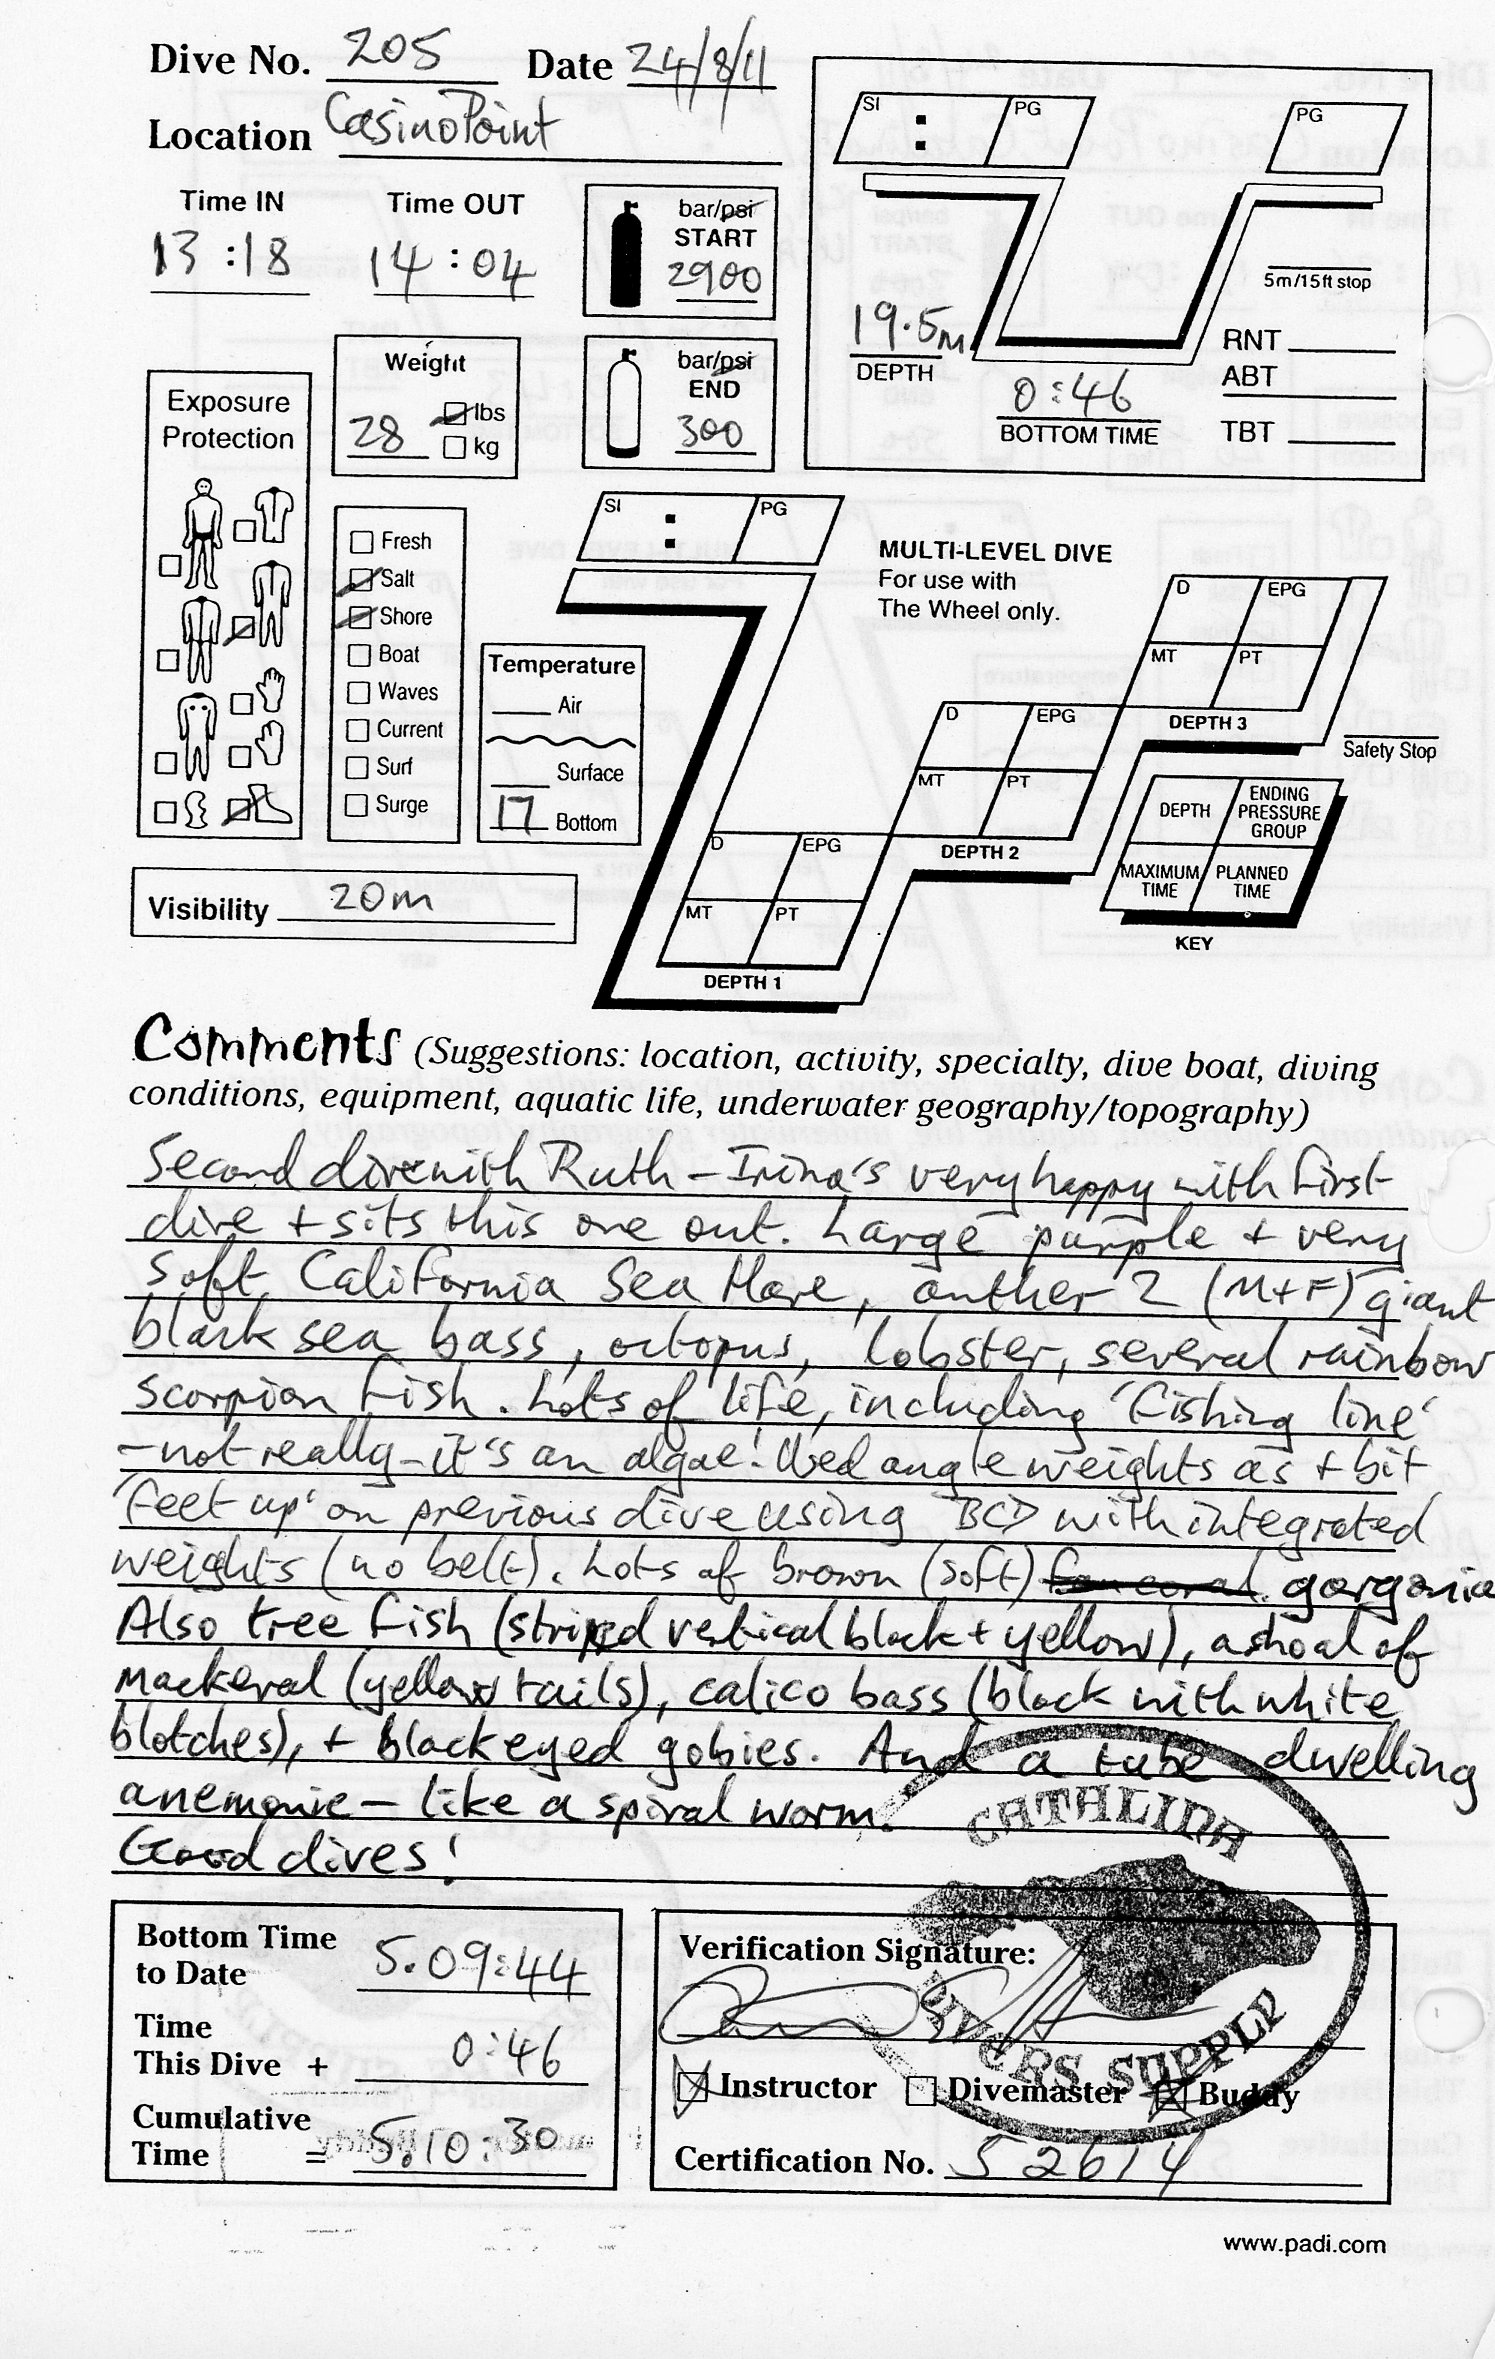 Dive No. 205 Date 24/8/11
Location Casino Point
Time IN
13:18
Time OUT
14:04
bar/psi
START
2900
SI : PG
PG
5m/15ft stop
19.5m
DEPTH
0:46
BOTTOM TIME
RNT
ABT
TBT
Weight
28
lbs
kg
bar/psi
END
300
Exposure
Protection
Fresh
Salt
Shore
Boat
Waves
Current
Surf
Surge
Temperature
Air
Surface
17 Bottom
Visibility 20m
SI : PG
MULTI-LEVEL DIVE
For use with
The Wheel only.
D EPG
MT PT
DEPTH 3
Safety Stop
D EPG
MT PT
DEPTH 2
D EPG
MT PT
DEPTH 1
DEPTH
ENDING
PRESSURE
GROUP
MAXIMUM
TIME
PLANNED
TIME
KEY
Comments (Suggestions: location, activity, specialty, dive boat, diving
conditions, equipment, aquatic life, underwater geography/topography)
Second dive with Ruth – Irina's very happy with first
dive + sits this one out. Large purple + very
soft California Sea Hare, another 2 (M+F) giant
black sea bass, octopus, lobster, several rainbow
scorpion fish. Lots of life, including 'fishing line'
– not really – it's an algae! Used angle weights as + bit
'feet up' on previous dive using BCD with integrated
weights (no belt). Lots of brown (soft) fan coral gorgonia
Also tree fish (striped vertical black + yellow), a shoal of
mackeral (yellow tails), calico bass (black with white
blotches), + blackeyed gobies. And a tube dwelling
anemonie – like a spiral worm.
Good dives!
CATALINA
DIVERS SUPPLY
Bottom Time
to Date 5.09:44
Time
This Dive + 0:46
Cumulative
Time = 5.10:30
Verification Signature:
Instructor Divemaster Buddy
Certification No. 52614
www.padi.com